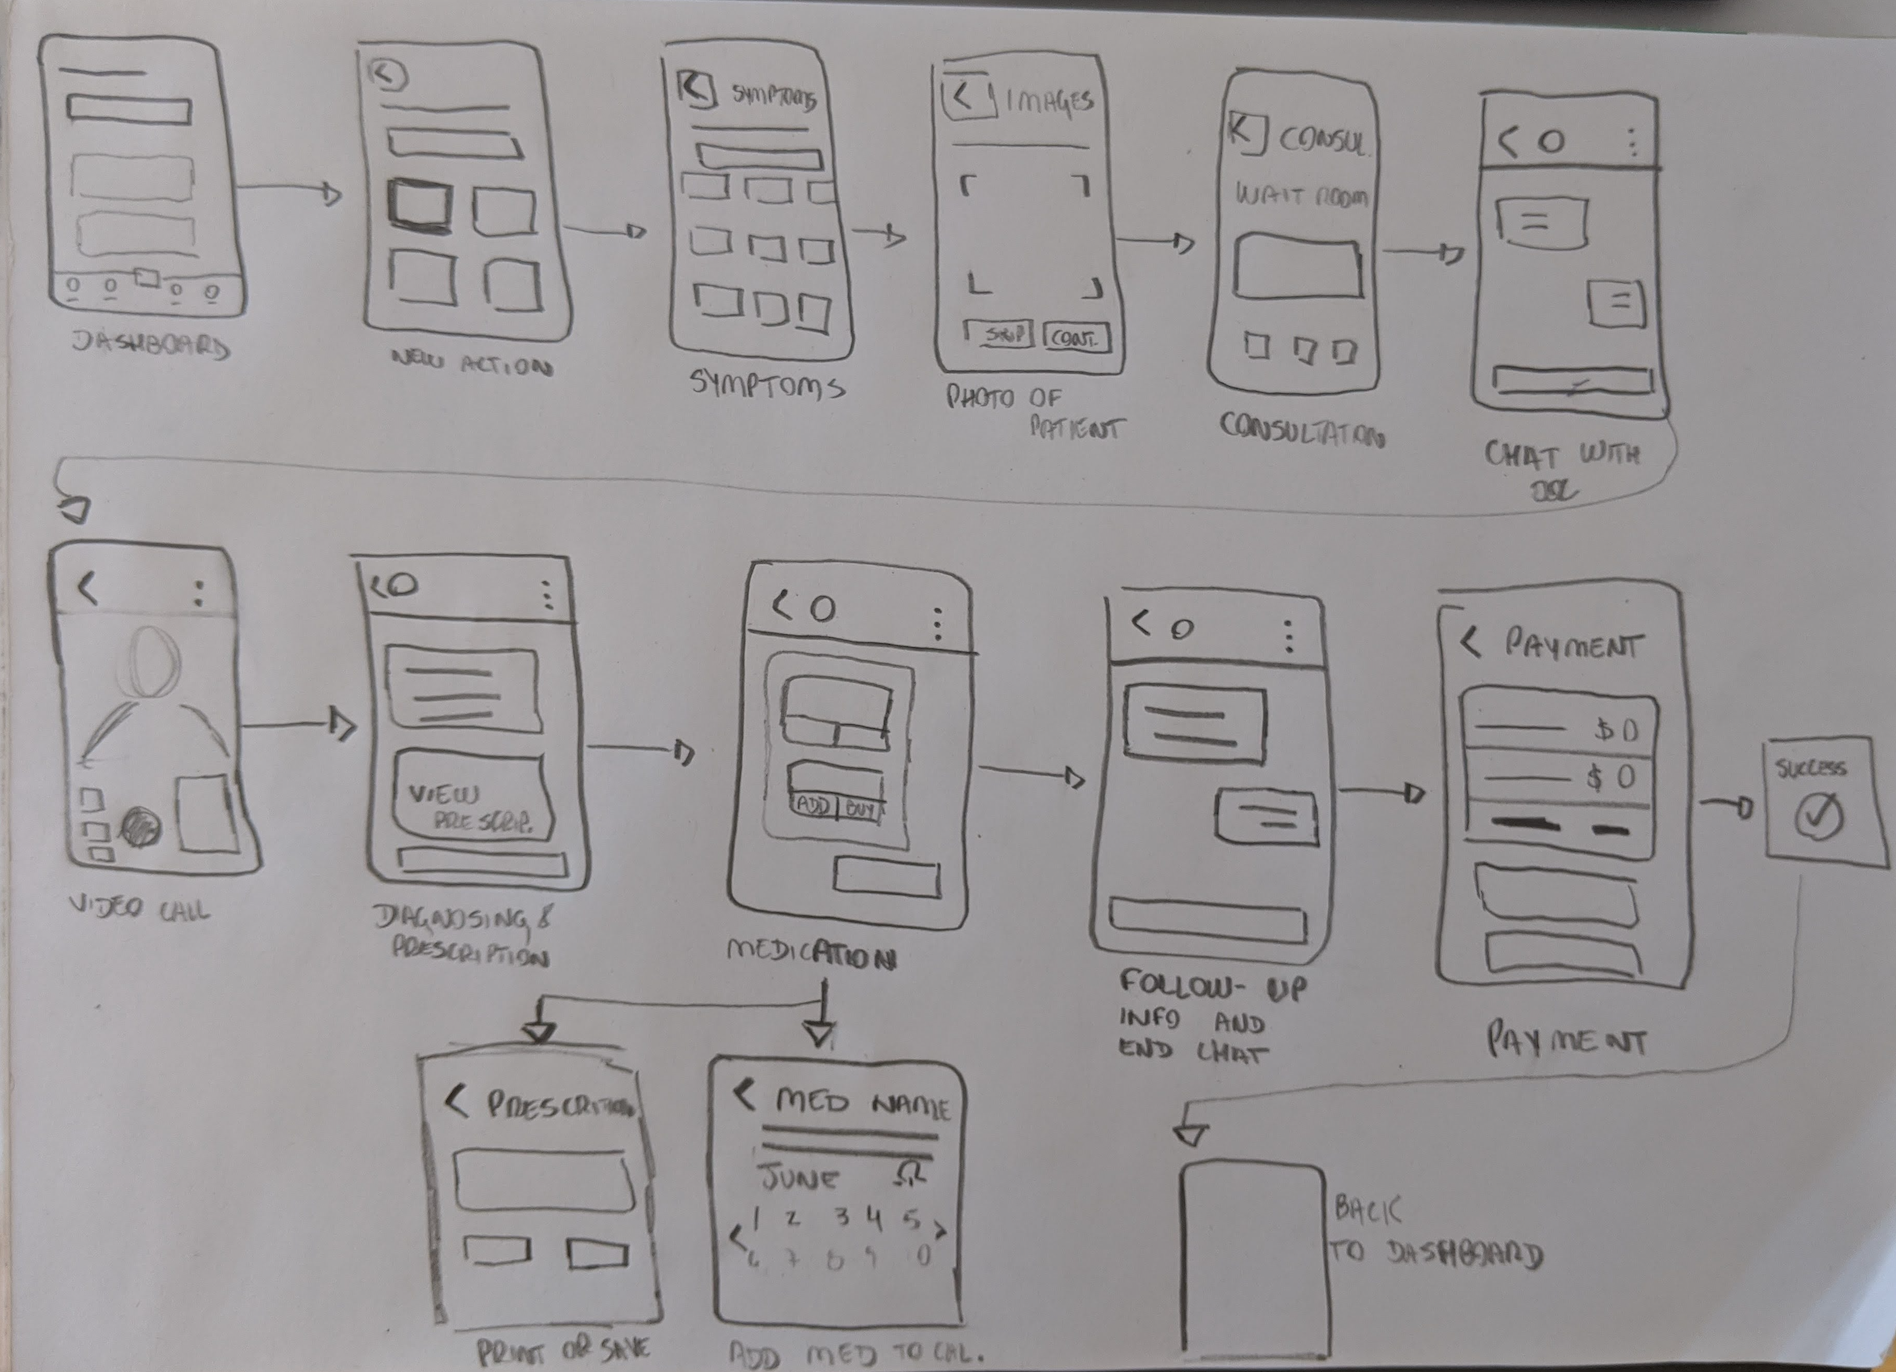 DASHBOARD
NEW ACTION
SYMPTOMS
SYMPTOMS
IMAGES
SKIP
CONT.
PHOTO OF
PATIENT
CONSUL.
WAIT ROOM
CONSULTATION
CHAT WITH
VIDEO CALL
VIEW
PRESCRIP.
DIAGNOSING &
PRESCRIPTION
ADD
BUY
MEDICATION
FOLLOW-UP
INFO AND
END CHAT
PAYMENT
$0
$0
PAYMENT
SUCCESS
PRESCRITION
PRINT OR SAVE
MED NAME
JUNE
1 2 3 4 5
6 7 8 9 0
ADD MED TO CAL.
BACK
TO DASHBOARD